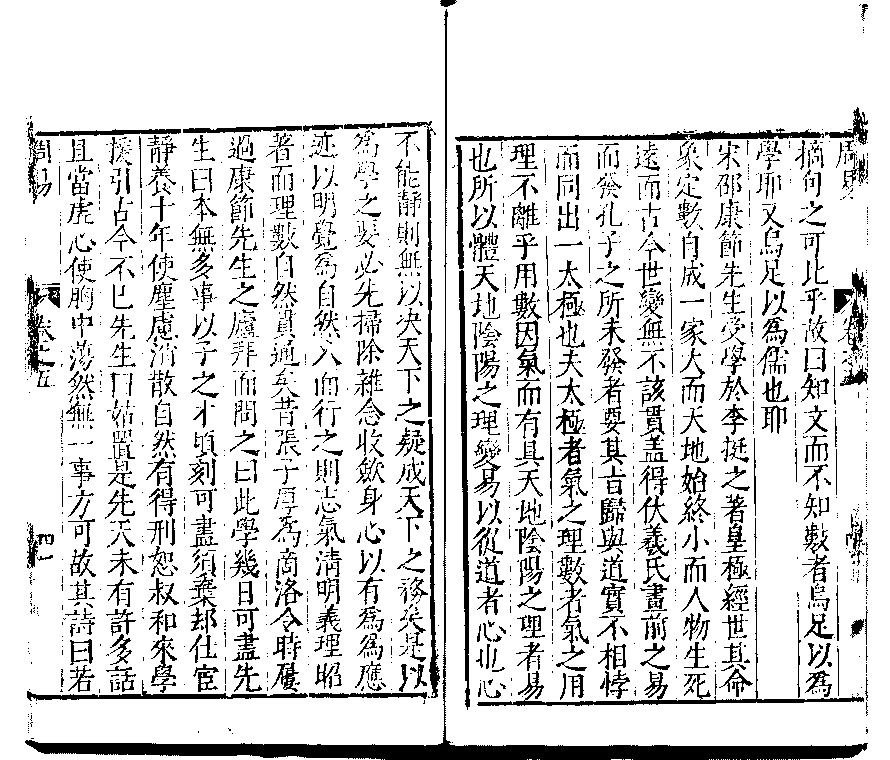 摘句之可比乎故曰知文而不知數者烏足以為
學耶又烏足以為儒也耶
宋邵康節先生受學於李挺之著皇極經世其命
象定數自成一家大而天地始終小而人物生死
遠而古今世變無不該貫盖得伏羲氏畫前之易
而發孔子之所未發者要其旨歸與道實不相悖
而同出一太極也夫太極者氣之理數者氣之用
理不離乎用數因氣而有具天地陰陽之理者易
也所以體天地陰陽之理變易以從道者心也心
不能靜則無以决天下之疑成天下之務矣是以
為學之要必先掃除雜念收斂身心以有為為應
迹以明覺為自然久而行之則志氣清明義理昭
著而理數自然貫通矣昔張子厚為商洛令時屢
過康節先生之廬拜而問之曰此學幾日可盡先
生曰本無多事以子之才頃刻可盡須棄却仕宦
靜養十年使塵慮消散自然有得刑恕叔和來學
援引古今不已先生曰姑置是先天未有許多話
且當虛心使胸中蕩然無一事方可故其詩曰若
周易
卷之五
四一